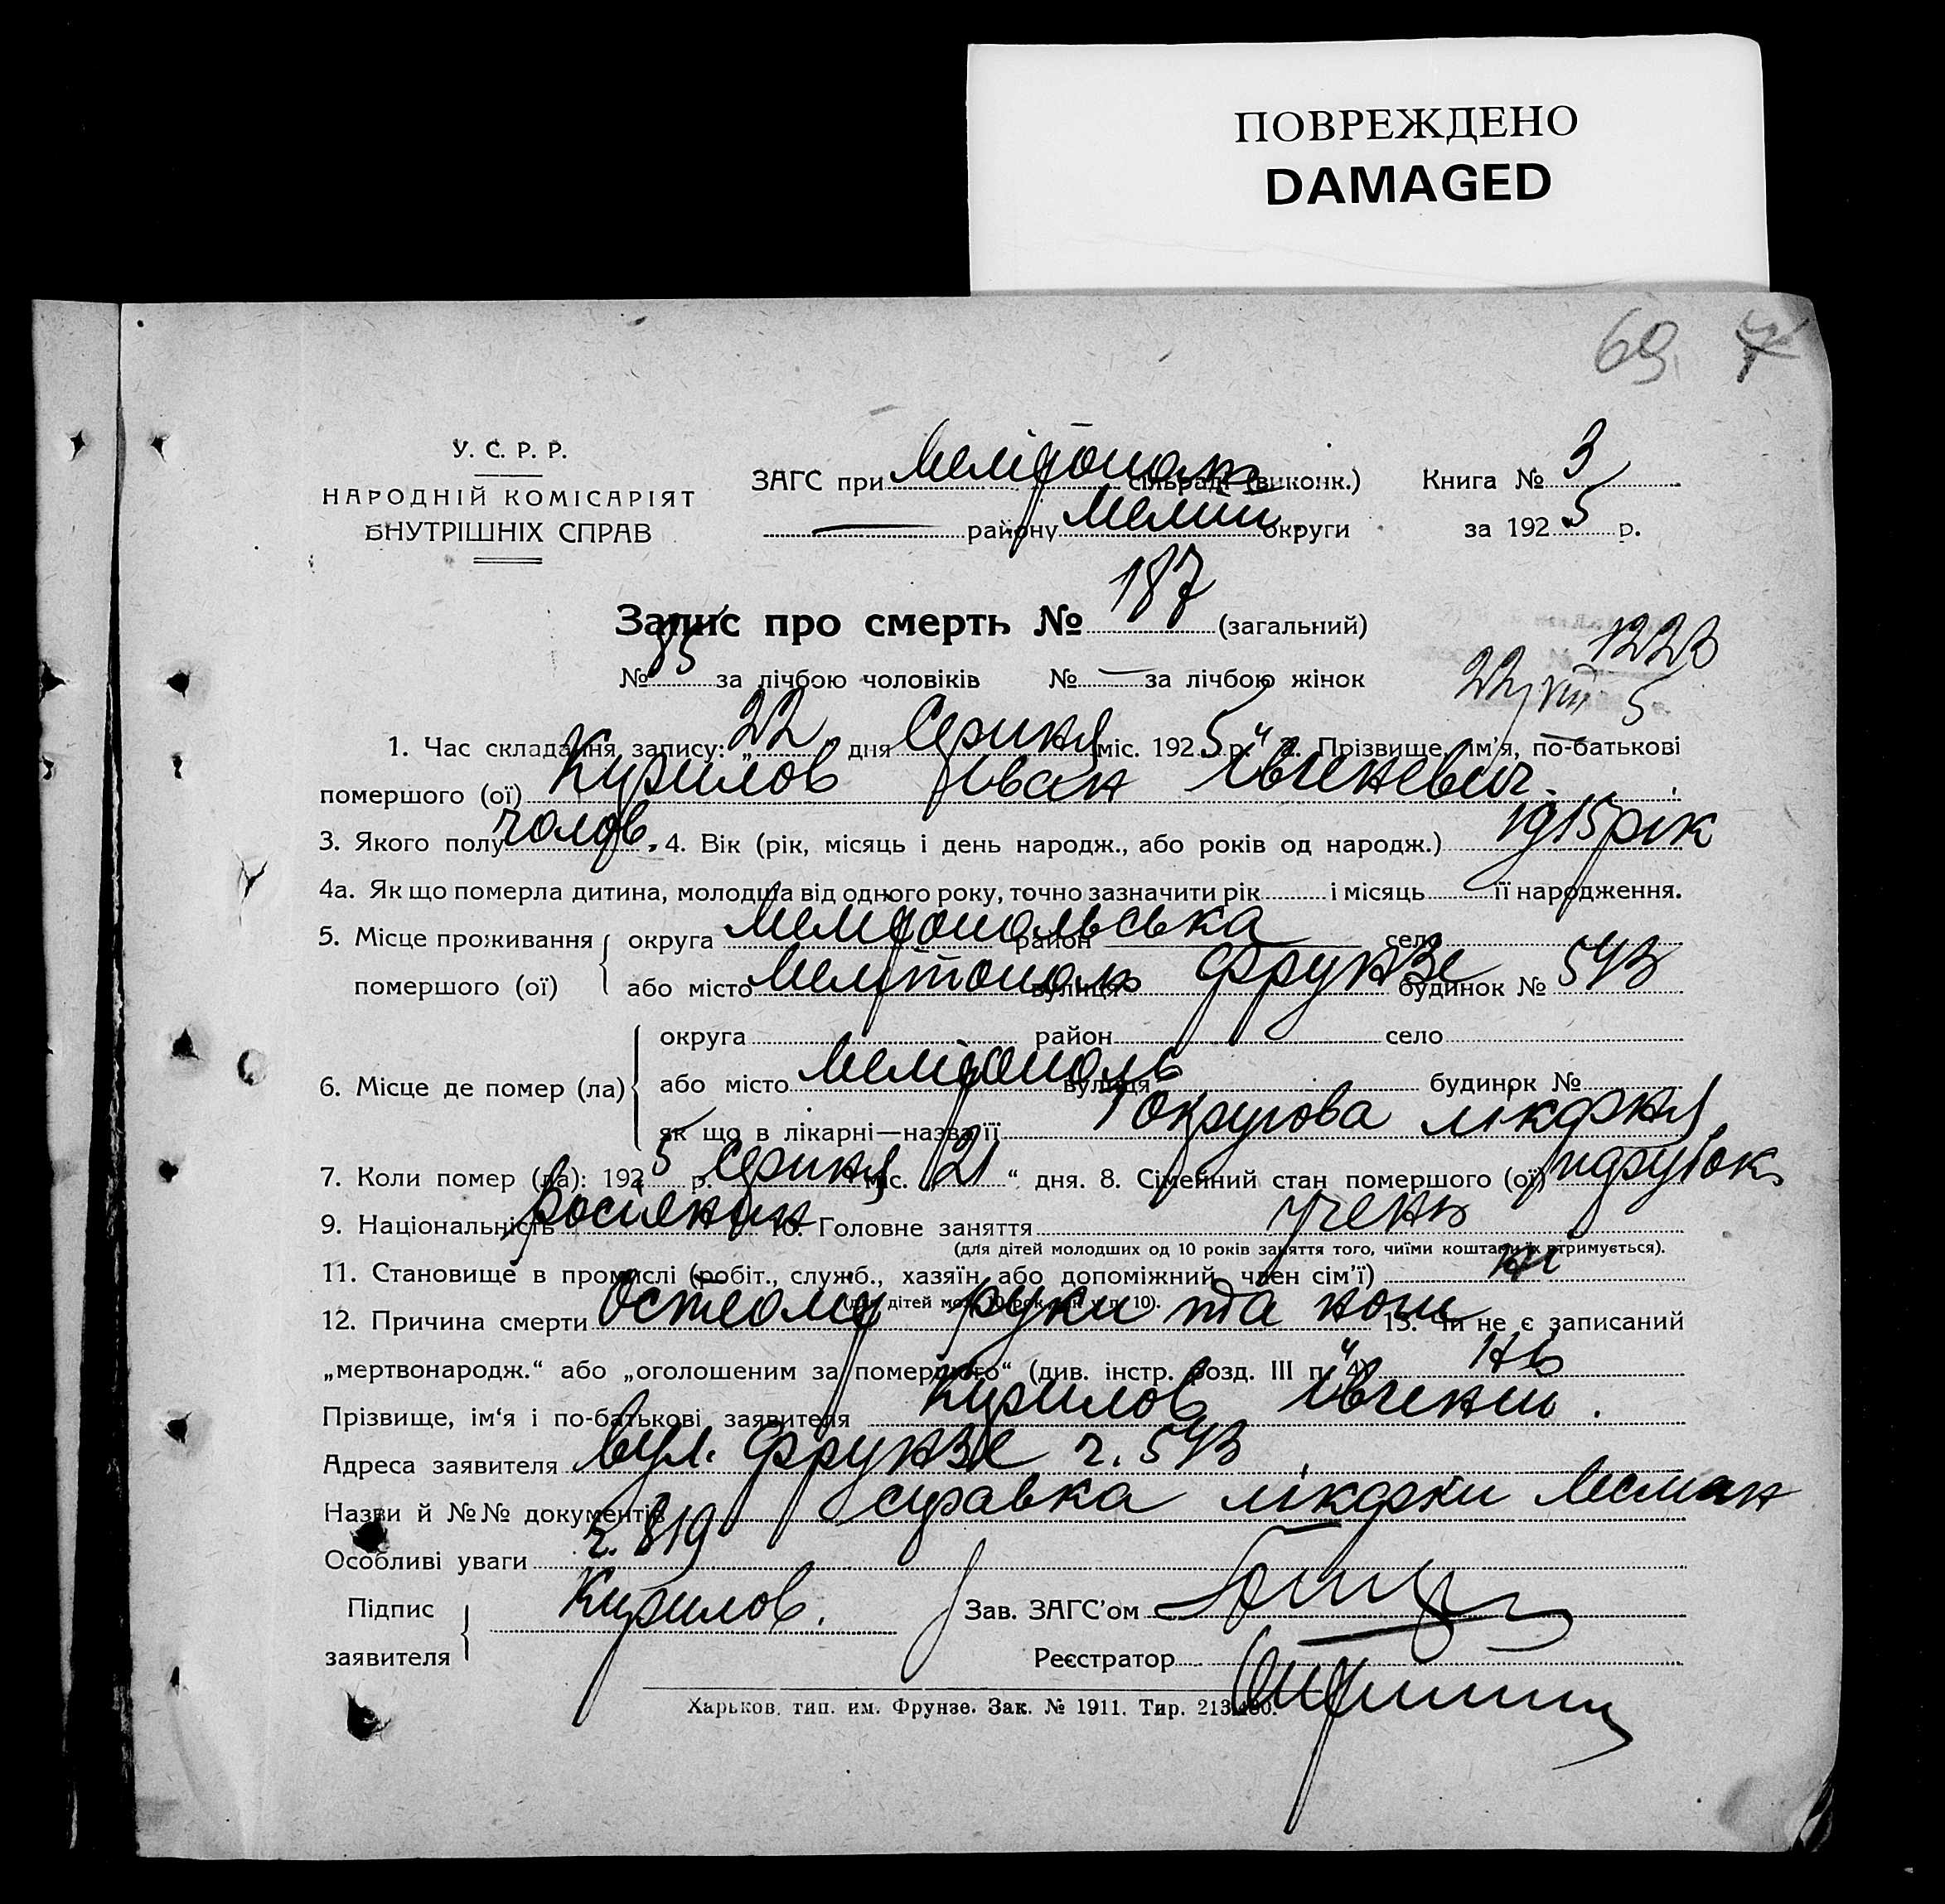 ПОВРЕЖДЕНО
DAMAGED
69. 7
У. С. Р. Р.
НАРОДНІЙ КОМІСАРІЯТ
ВНУТРІШНІХ СПРАВ
ЗАГС при Мелітополь сільраді (виконк.)
району Меліт. округи
Книга № 3
за 1925 р.
Запис про смерть № 187 (загальний)
№ 85 за лічбою чоловіків № — за лічбою жінок
1223
22/VIII 5
1. Час складання запису: „22 дня Серпня міс. 1925 р.“ 2. Прізвище, ім'я, по-батькові
помершого (ої) Курилов Іван Івгеневич.
3. Якого полу чолов. 4. Вік (рік, місяць і день народж., або років од народж.) 1915 рік
4а. Як що померла дитина, молодша від одного року, точно зазначити рік і місяць її народження.
5. Місце проживання помершого (ої) округа Мелітопольська район — село
або місто Мелітополь вулиця Фрунзе будинок № 543
6. Місце де помер (ла) округа район село
або місто Мелітополь вулиця будинок №
як що в лікарні—назва її Округова лікарня
7. Коли помер (ла): 1925 р. Серпня міс. „21“ дня. 8. Сімейний стан помершого (ої) парубок
9. Національність росіянин 10. Головне заняття учень
(для дітей молодших од 10 років заняття того, чиїми коштами їх втримується).
11. Становище в промислі (робіт., служб., хазяїн або допоміжний член сім'ї) ні
12. Причина смерти руки та ноги 13. Чи не є записаний
„мертвонародж.“ або „оголошеним за померлого“ (див. інстр. розд. III п. 4) Ні
Прізвище, ім'я і по-батькові заявителя Курилов Івгений.
Адреса заявителя вул. Фрунзе ч. 543
Назви й №№ документів справка лікарни
ч. 819
Особливі уваги
Підпис заявителя Курилов. Зав. ЗАГС'ом
Реєстратор
Харьков. тип. им. Фрунзе. Зак. № 1911. Тир.